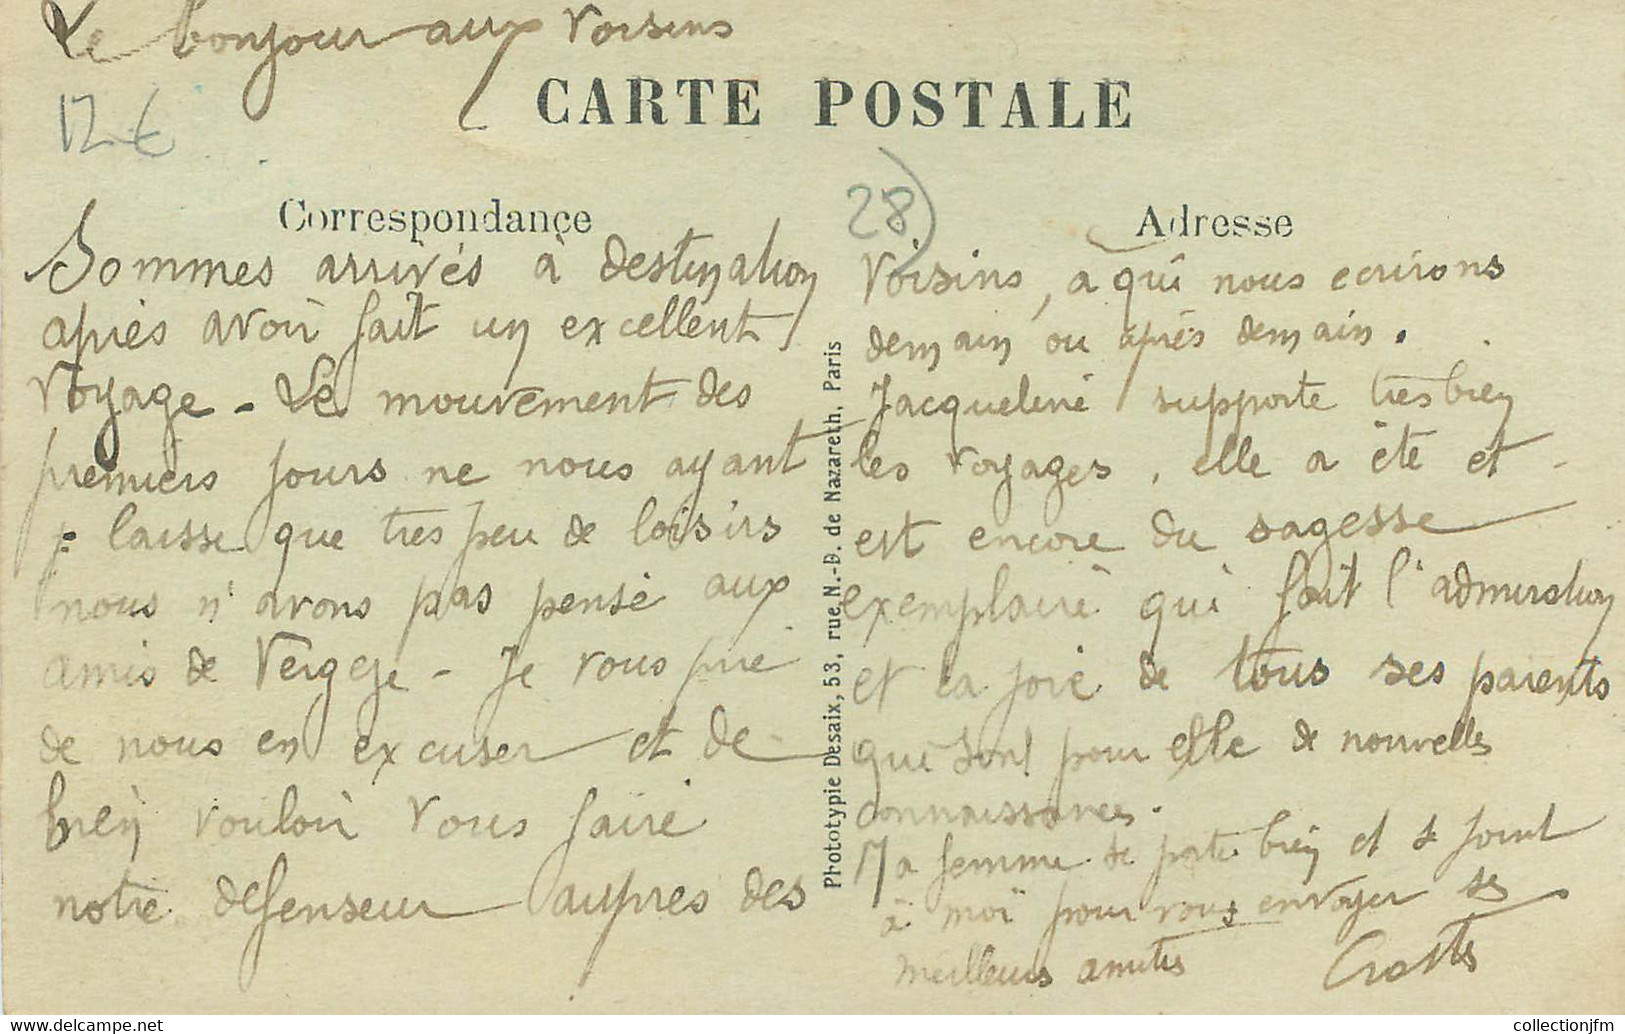 Le bonjour aux voisins
12 €
CARTE POSTALE
28)
Correspondance
Sommes arrivés à destination
après avoir fait un excellent
voyage - Le mouvement des
premiers jours ne nous ayant
laissé que très peu de loisirs
nous n'avons pas pensé aux
amis de Vergeze - Je vous prie
de nous en excuser et de
bien vouloir vous faire
notre defenseur auprès des
Phototypie Desaix, 53, rue N.-D. de Nazareth, Paris
Adresse
Voisins, a qui nous ecrirons
demain ou après demain.
Jacqueline supporte tres bien
les voyages, elle a été et
est encore du sagesse
exemplaire qui fait l'admiration
et la joie de tous ses parents
que sont pour elle de nouvelles
connaissances.
Ma femme se porte bien et se joint
à moi pour vous envoyer ses
meilleurs amitiés
collectionjfm